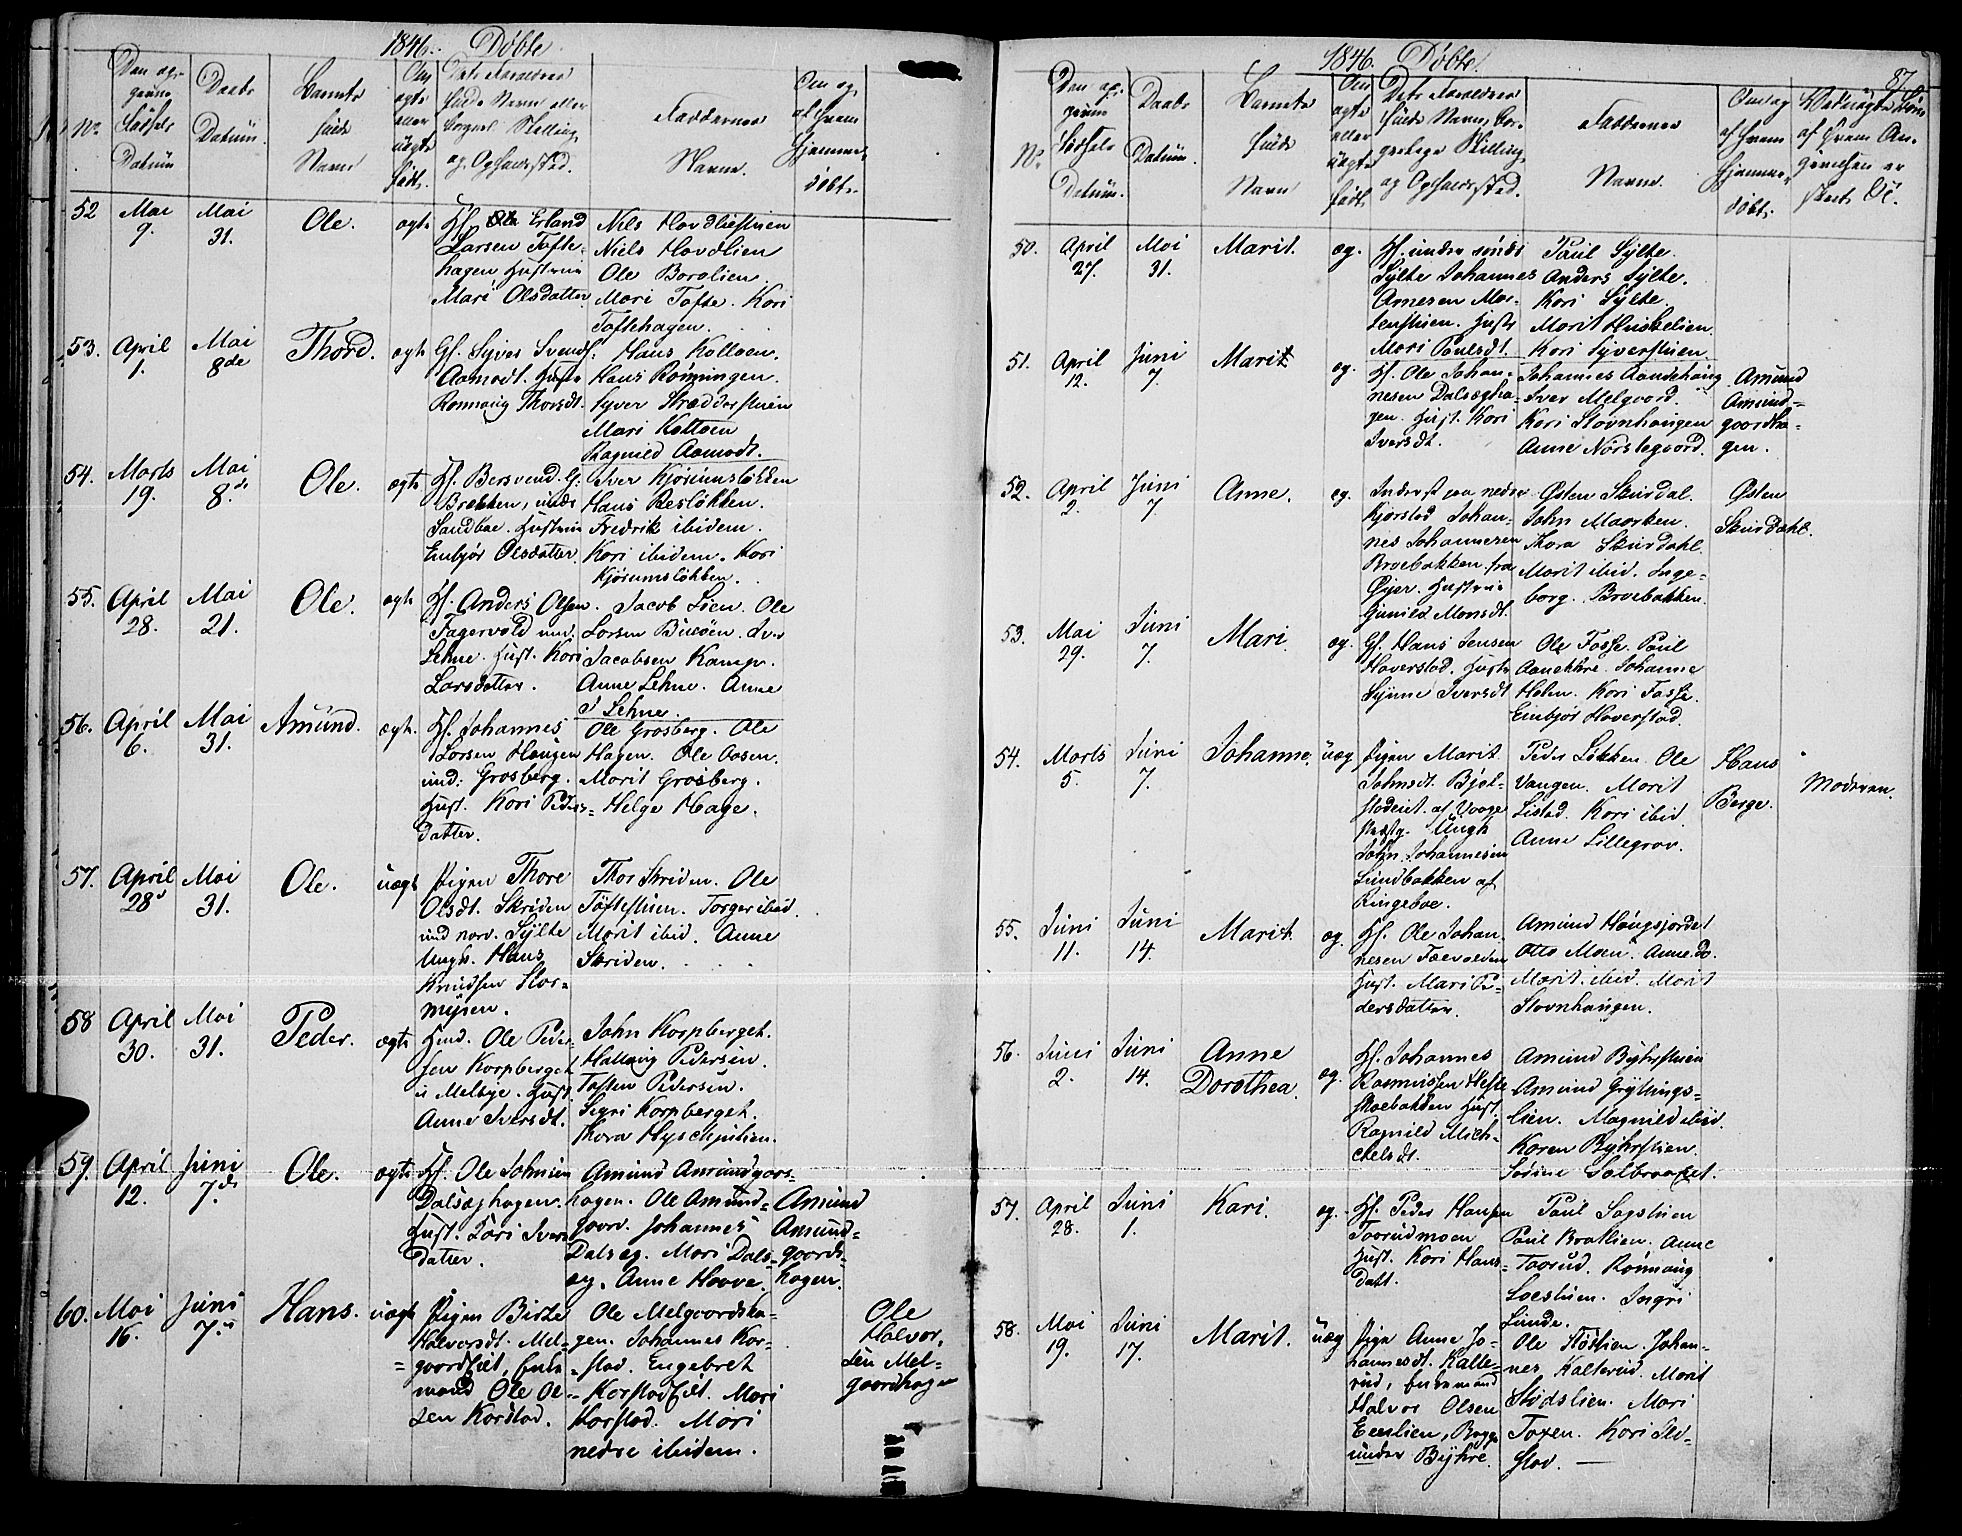 1846. Döbte.
No
Den op-
givne
Födsels
Datum
Daabs
Datum.
Barnets
fulde
Navn
Om
ægte
eller
uægte
födt.
Dets Forældres
fulde Navn eller
Stilling
og Opholdssted.
Faddernes
Navne.
Om og
af hvem
hjemme-
döbt.
52
Mai
9.
Mai
31.
Ole.
ægte
Hf. Erland
Larsen Tofte-
hagen Hustrue
Mari Olsdatter
Nils Hovdliestuen
Niels Hovdlien
Ole Borelien.
Mari Tofte. Kari
Toftehagen.
53.
April
1.
Mai
8de
Thord.
ægte
Gf. Syver Svends.
Aamodt. Hustr
Ronnaug Thorsdt.
Hans Kolloen.
Hans Rönningen.
Syver Skredderstuen
Mari Kolloen
Ragnild Aamodt.
54.
Marts
19.
Mai
8de
Ole.
ægte
Hf. Bersvend G.
Brekken, under
Sandboe. Hustrue
Embjör Olsdatter
Iver Kjörumslökken
Hans Resløkken.
Fredrik ibidem.
Kari ibidem. Kari
Kjörumslökken.
55.
April
28.
Mai
21.
Ole.
ægte
Hf. Anders Olsen
Fagervold und.
Lehne. Hust. Kari
Larsdatter.
Jacob Lien. Ole
Larsen Bueöen. Iver
Jacobsen Kampe.
Anne Lehne. Anne
Lehne.
56.
April
6.
Mai
31.
Amund.
ægte.
Hf. Johannes
Larsen Haugen
und: Grosberg.
Hust. Kari Peders-
datter.
Ole Grosberg. Ole
Hagen. Ole Aasen.
Marit Grosberg.
Helge Hage.
57.
April
28
Mai
31.
Ole.
uægte
Pigen Thore
Olsdt. Skriden
und norv. Sylte
Ungk. Hans
Knudsen Stor-
myren.
Thor Skriden. Ole
Toftestuen. Torger ibid.
Marit ibid. Anne
Skriden.
58
April
30.
Mai
31.
Peder.
ægte
Hmd. Ole Peder-
sen Korpberget
u Melbye. Hust.
Anne Iversdt.
John Korpberget.
Halvor Pedersen.
Torsten Pedersen.
Sigri Korpberget.
Thora Hyskjulien.
59.
April
12.
Juni
7de
Ole.
ægte
Hf. Ole Johnsen
Dalsæghagen.
Hust. Kari Ivers
datter.
Amund Amundgaards-
hagen. Ole Amund-
gaard. Johannes
Dalseg. Mari Dals-
eg. Anne Hoove.
Amund
Amund-
gaards-
hagen.
60.
Mai
16.
Juni
7.
Hans.
uægte
Pigen Birte
Halvorsdt. Mel-
gaardseiet, Enke-
mand Ole Ol-
sen Korstad.
Ole Melgaardsha-
gen. Johannes Kor-
stad. Engebret
Korstadeiet. Mari
Korstad. Mari
nedre ibidem.
Ole
Halvor-
sen Mel-
gaardhage
1846. Döbte.
87
No
Den op-
givne
Födsels
Datum.
Daabs
Datum.
Barnets
fulde
Navn
Om
ægte
eller
uægte
födt
Dets Forældres
fulde Navn, Bor-
gerlige Stilling
og Opholdssted.
Faddernes
Navne.
Om og
af hvem
hjemme-
döbt.
af hvem An-
givelsen er
skeet
50.
April
27.
Mai
31.
Marit.
æg.
Hf. under söndr
Sylte Johannes
Arnesen Mor-
tenstuen. Hustr
Mari Paulsdt.
Paul Sylte.
Anders Sylte.
Kari Sylte.
Marit Huskelien
Kari Syverstuen
51.
April
12.
Juni
7.
Marit
æg.
Hf. Ole Johan-
nesen Dalsægha-
gen. Hust. Kari
Iversdt.
Johannes Aandehaug
Iver Melgaard.
Kari Stovnhaugen
Anne Norstegaard.
Amund
Amund-
gaardha-
gen.
52.
April
2.
Juni
7
Anne.
æg.
Inderst paa nedre
Kjorstad Johan-
nes Johannesen
Broebakken fra
Öyer. Hustrue
Gunild Monsdt.
Østen Skurdal.
John Moorken.
Thora Skurdahl.
Marit ibid. Inge-
borg Broebakken.
Østen
Skurdahl.
53.
Mai
29.
Juni
7.
Mari.
æg.
Gf. Hans Jensen
Haverstad. Hustr
Synne Iversdt
Ole Fosse. Paul
Aanekre. Johanne
Holen. Kari Fosse.
Embjör Haverstad.
54.
Marts
5.
Juni
7.
Johanne.
uæg
Pigen Marit
Johnsdt. Bjöl-
stadeiet af Vaage
Præstg. Ungk
John Johannesen
Lundbakken af
Ringeboe.
Peder Lökken. Ole
Vangen. Marit
Listad. Kari ibid.
Anne Lillegrov.
Hans
Berge.
Moderen.
55.
Juni
11.
Juni
14.
Marit.
æg.
Hf. Ole Johan-
nesen Fævolden
Hust. Mari Pe-
dersdatter.
Amund Haugsjordet
Otto Moen. Anne do.
Marit ibid. Marit
Stovnhaugen.
56.
Juni
2.
Juni
14.
Anne
Dorothea.
æg.
Hf. Johannes
Rasmussen Hesle
skoebakken Hust.
Ragnild Mich-
elsdt.
Amund Byhrstuen
Amund Grytings-
lien. Magnild ibid.
Karen Byhrstuen.
Sedine Solbraaket.
57.
April
28.
Juni
1.
Kari.
æg.
Hf. Peder Hansen
Toorudmoen
Hust. Kari Hans-
datt.
Paul Sagstuen
Paul Bratlien. Anne
Toorud. Rönnaug
Loestuen. Ingri
Lunde.
58.
Mai
19.
Juni
17.
Marit.
uæg
Pige Anne Jo-
hannesdt. Kalle-
rud, Enkemand
Halvor Olsen
Enlien, Begge
under Byhre.
Ole Stödlien. Johan-
nes Kalterud. Marit
Stödslien. Mari
Toxen. Kari Sle-
stad. —